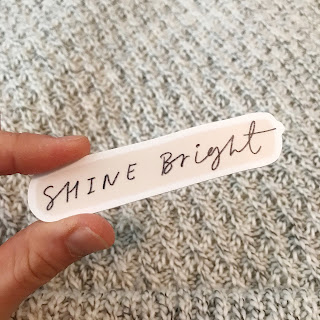 SHINE Bright